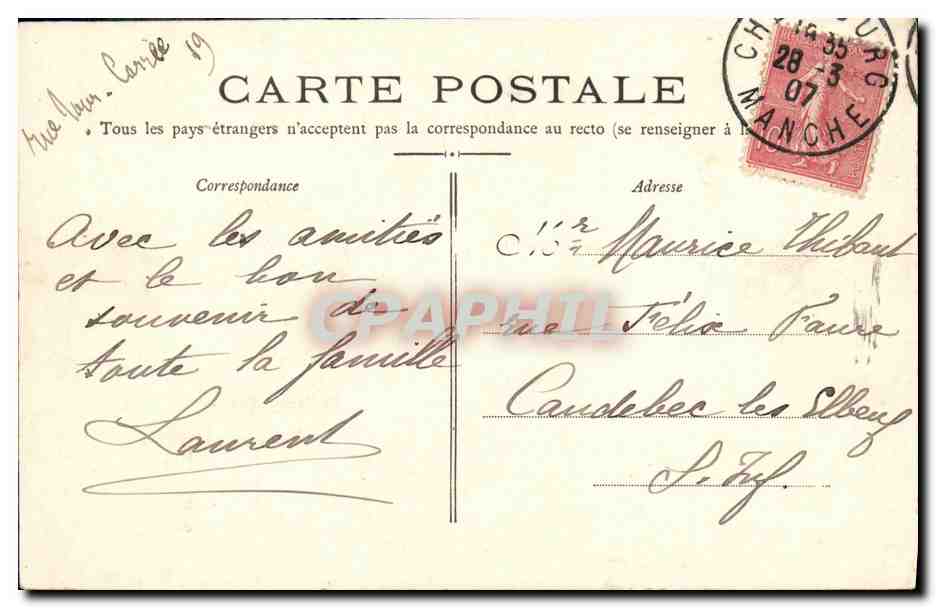 rue Tour-Carrée 19
CARTE POSTALE
Tous les pays étrangers n'acceptent pas la correspondance au recto (se renseigner à la
CH OURG
19 35
28 -3
07
MANCHE
10
Correspondance
Avec les amitiés
et le bon
souvenir de
toute la famille
Laurent
Adresse
Maurice Thibaut
rue Félix Faure
Caudebec les Elbeuf
S. Inf.
CPAPHIL